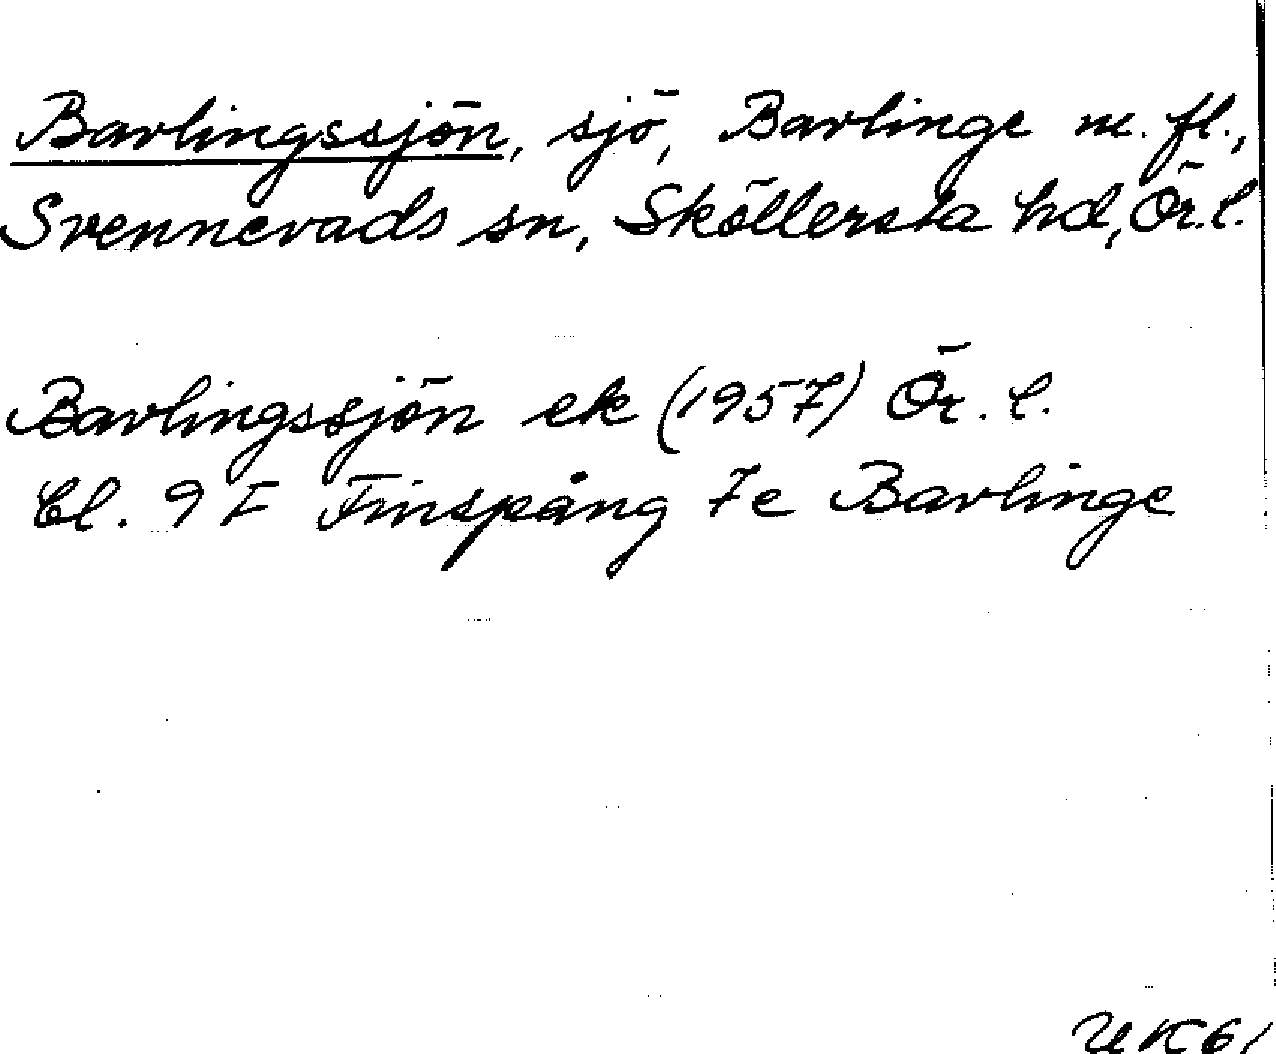 Bavlingssjön, sjö, Bavlinge m. fl.,
Svennevads sn, Sköllersta hd, Ör.l.
Bavlingssjön ek (1957) Ör. l.
Bl. 9 F Finspång 7e Bavlinge
UK 61